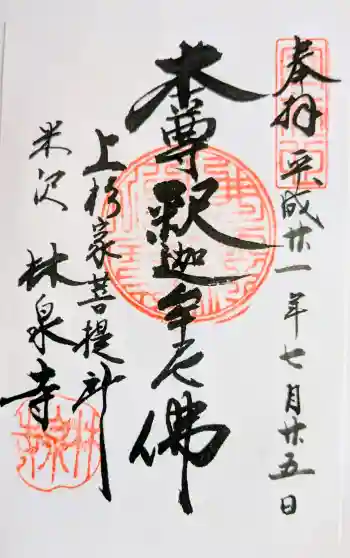 奉拝 平成廿一年七月廿五日
本尊釈迦牟尼佛
上杉家菩提所
米沢 林泉寺